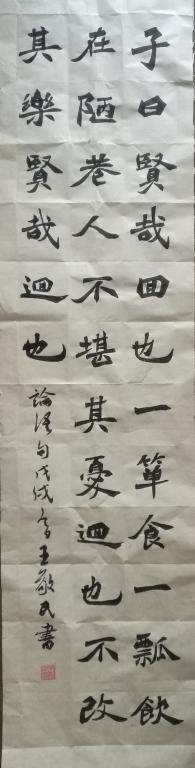 子曰賢哉回也一箪食一瓢飲
在陋巷人不堪其憂迴也不改
其樂賢哉迴也
論語句戊戌冬王敬民書